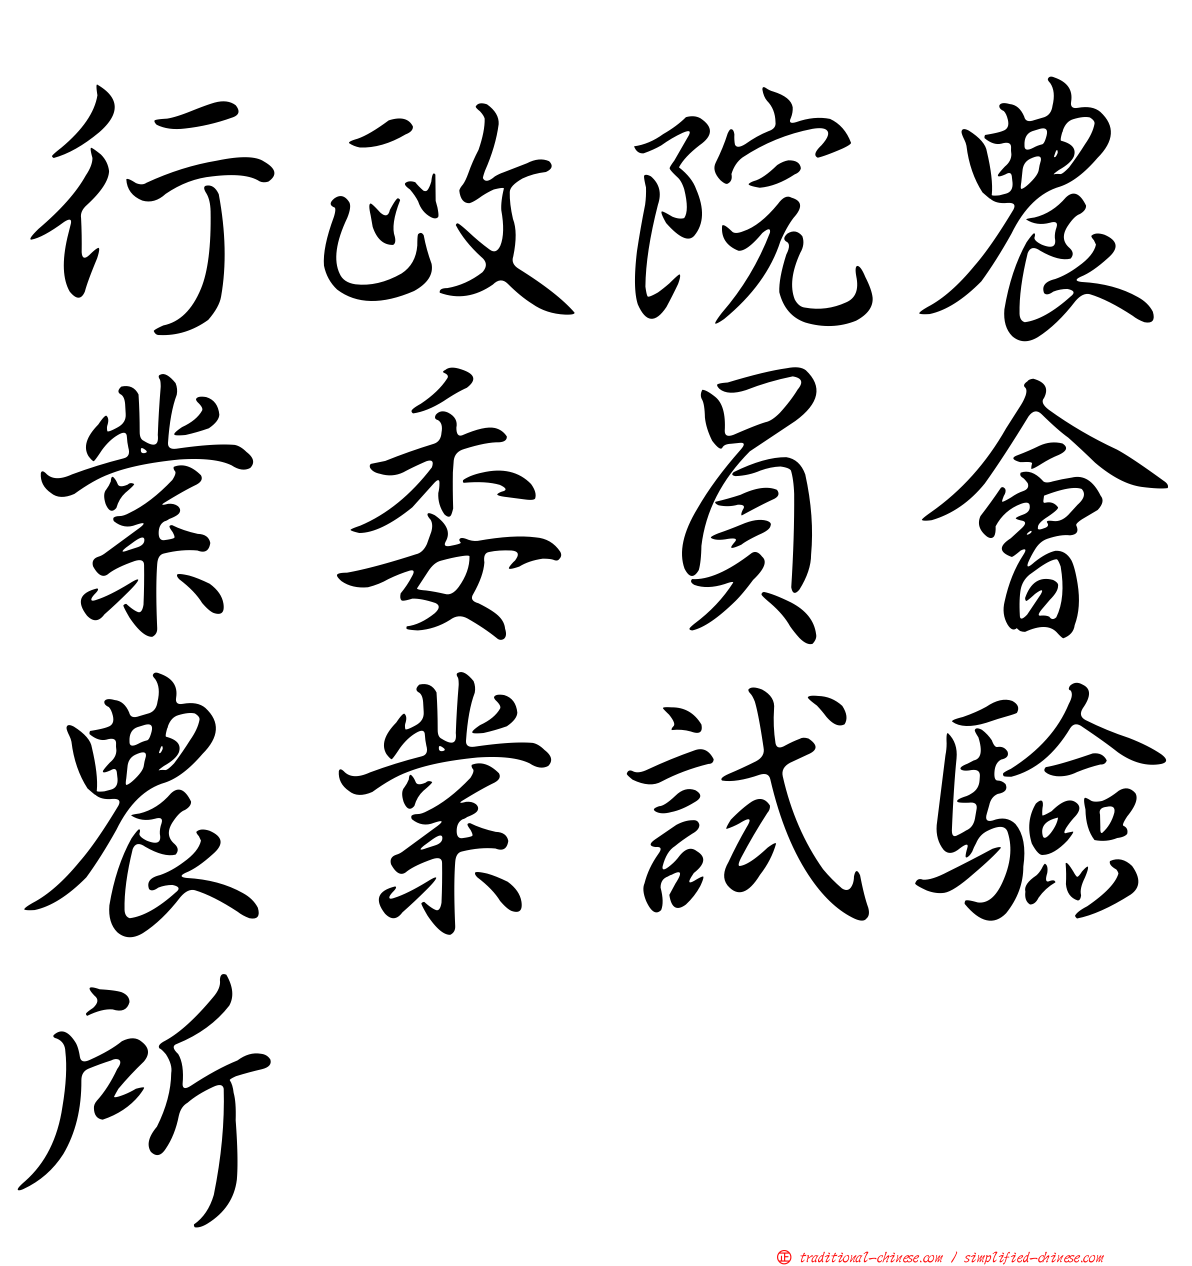 行政院農
業委員會
農業試驗
所
正 traditional-chinese.com / simplified-chinese.com